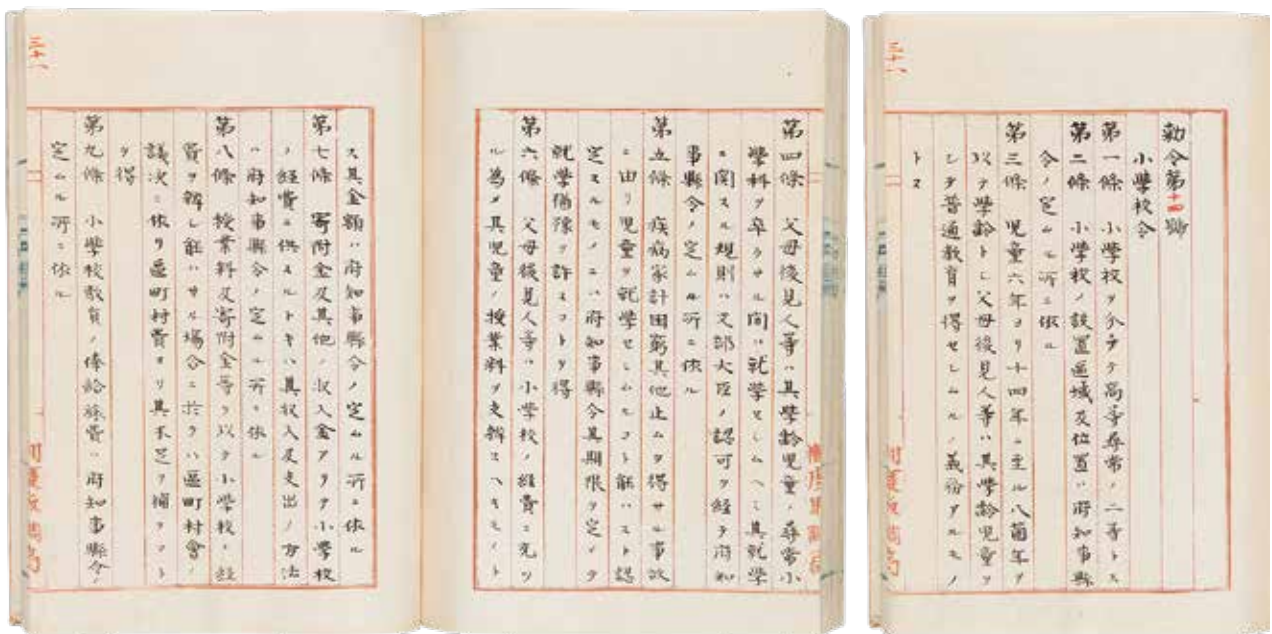 勅令第十四號
小學校令
第一條 小學校ヲ分チテ高等尋常ノ二等トス
第二條 小學校ノ設置區域及位置ハ府知事縣
令ノ定ムル所ニ依ル
第三條 児童六年ヨリ十四年ニ至ル八箇年ヲ
以テ學齢トシ父母後見人等ハ其學齢児童ヲ
シテ普通教育ヲ得セシムルノ義務アルモノ
トス
第四條 父母後見人等ハ其學齢児童ノ尋常小
學科ヲ卒ラサル間ハ就學セシムヘシ其就學
ニ関スル規則ハ文部大臣ノ認可ヲ経テ府知
事縣令ノ定ムル所ニ依ル
第五條 疾病家計困窮其他止ムヲ得サル事故
ニ由リ児童ヲ就學セシムルコト能ハスト認
定スルモノニハ府知事縣令其期限ヲ定メテ
就學猶豫ヲ許スコトヲ得
第六條 父母後見人等ハ小學校ノ経費ニ充ツ
ル為メ其児童ノ授業料ヲ支辨スヘキモノト
ス其金額ハ府知事縣令ノ定ムル所ニ依ル
第七條 寄附金及其他ノ収入金アリテ小學校
ノ経費ニ供スルトキハ其収入及支出ノ方法
ハ府知事縣令ノ定ムル所ニ依ル
第八條 授業料及寄附金等ヲ以テ小學校ノ経
費ヲ辨シ能ハサル場合ニ於テハ區町村會ノ
議決ニ依リ區町村費ヨリ其不足ヲ補フコト
ヲ得
第九條 小學校教員ノ俸給旅費ハ府知事縣令ノ
定ムル所ニ依ル
三十八
三十八